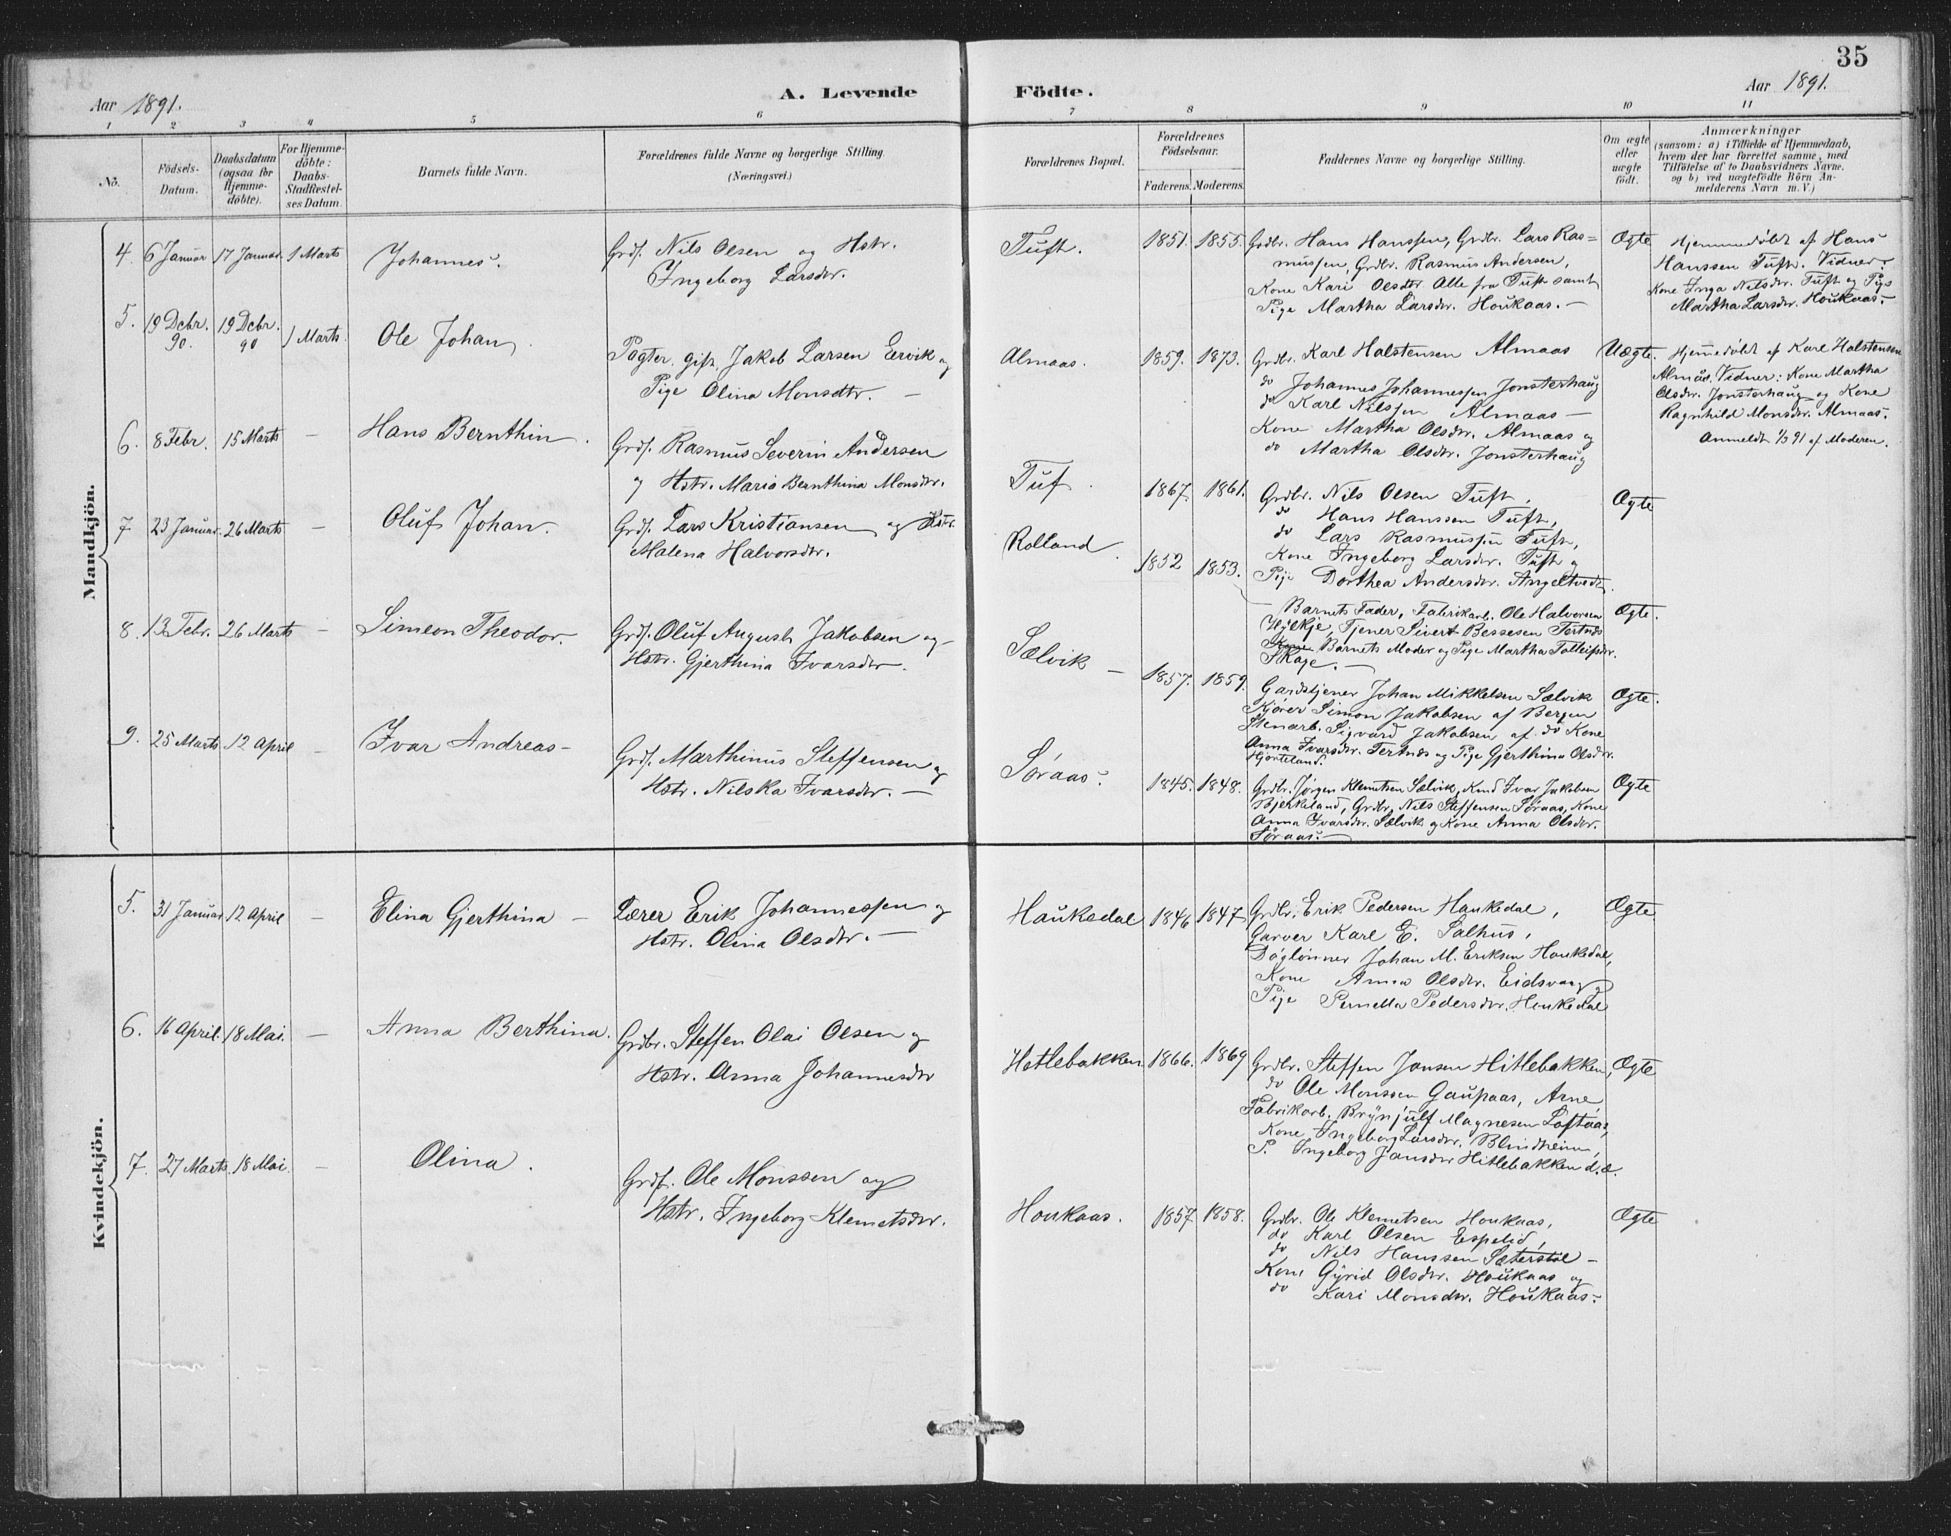 35
Aar 1891.
A. Levende
Födte.
Aar 1891.
1 2 3 4 5 6 7 8 9 10 11
No.
Födsels-Datum.
Daabsdatum (ogsaa for Hjemme-döbte).
For Hjemme-döbte: Daabs-Stadfæstel-ses Datum.
Barnets fulde Navn.
Forældrenes fulde Navne og borgerlige Stilling.
(Næringsvei.)
Forældrenes Bopæl.
Forældrenes Födselsaar.
Faderens. Moderens.
Faddernes Navne og borgerlige Stilling.
Om ægte eller uægte födt.
Anmærkninger
(saasom: a) i Tilfælde af Hjemmedaab,
hvem der har forrettet samme, med
Tilföielse af to Daabsvidners Navne,
og b) ved uægtefödte Börn An-
melderens Navn m. V.)
Mandkjön.
4. 6 Januar 17 Januar 1 Marts Johannes.
Grdf. Nils Olsen og Hstr.
Ingeborg Larsdtr.
Tuft. 1851. 1855.
Grdbr. Hans Hanssen, Grdbr. Lars Ras=
mussen, Grdbr. Rasmus Andersen,
Kone Kari Olsdtr Alle fra Tuft samt
Pige Martha Larsdtr. Houkaas.—
Ægte
Hjemmedøbt af Hans
Hanssen Tuft. Vidner:
Kone Inga Nilsdtr. Tuft og Pige
Martha Larsdtr. Houkaas.
5. 19 Dcbr. 90. 19 Dcbr. 90 1 Marts. Ole Johan.
Pagter, gift, Jakob Larsen Eervik og
Pige Olina Monsdtr. —
Almaas. 1859. 1873.
Grdbr. Karl Halstensen Almaas
do Johannes Johannessen Jonsterhaug
do Karl Nilssen Almaas —
Kone Martha Olsdtr. Almaas og
do Martha Olsdtr. Jonsterhaug
Uægte.
Hjemmedøbt af Karl Halstensen
Almaas. Vidner: Kone Martha
Olsdtr. Jonsterhaug og Kone
Ragnhild Monsdtr. Almaas.
Anmeldt 1/3 91 af Moderen.
6. 8 Febr. 15 Marts — Hans Bernthin.
Grdf. Rasmus Severin Andersen
og Hstr. Maria Bernthina Monsdtr.
Tuf. 1867. 1861.
Grdbr. Nils Olsen Tuft,
do Hans Hanssen Tuft,
do Lars Rasmussen Tuft,
Kone Ingeborg Larsdtr. Tuft og
Pige Dorthea Andersdtr. Angeltvedt.
Ægte
7. 23 Januar. 26 Marts — Oluf Johan.
Grdf. Lars Kristiansen og Hstr.
Malena Halvorsdtr.
Rolland. 1852 1853.
Barnets Fader, Fabrikarb. Ole Halvorsen
Hylkje, Tjener Sivert Bessesen Tertnes
Barnets Moder og Pige Martha Tolleifsdtr.
Skage. —
Ægte.
8. 13 Febr. 26 Marts — Simeon Theodor.
Grdf. Oluf August Jakobsen og
Hstr. Gjerthina Ivarsdtr.
Sælvik — 1857. 1859.
Gardstjener Johan Mikkelsen Sælvik
Kjører Simon Jakobsen af Bergen
Stenarb. Sigvard Jakobsen, af do Kone
Anna Ivarsdtr. Tertnes og Pige Gjerthina Olsdtr.
Hjorteland.
Ægte.
9. 25 Marts 12 April — Ivar Andreas —
Grdf. Marthinus Steffensen og
Hstr. Nilska Ivarsdtr. —
Søraas. 1845. 1848.
Grdbr. Jørgen Klemetsen Sælvik, Knud Ivar Jakobsen
Bjerkeland, Grdbr. Nils Steffensen Søraas, Kone
Anna Ivarsdtr. Sælvik og Kone Anna Olsdtr.
Søraas.—
Ægte
Kvindekjön.
5. 31 Januar. 12 April — Elina Gjerthina —
Lærer Erik Johannessen og
Hstr. Olina Olsdtr. —
Haukedal 1846 1847
Grdbr. Erik Pedersen Haukedal,
Garver Karl E. Salhus,
Daglønner Johan M. Eriksen Houkedal,
Kone Anna Olsdtr. Eidsvaag og
Pige Pernella Pedersdtr. Houkedal
Ægte
6. 16 April. 18 Mai. — Anna Berthina.
Grdbr. Steffen Olai Olsen og
Hstr. Anna Johannesdtr
Hetlebakken. 1866. 1869
Grdbr. Steffen Jansen Hitlebakken,
do Ole Monssen Gaupaas, Arne,
Fabrikarb. Brynjulf Magnesen Loftaas,
Kone Ingeborg Larsdtr. Blindheim,
P. Ingeborg Jansdtr Hitlebakken d.æ.
Ægte
7. 27 Marts. 18 Mai. — Olina.
Grdf. Ole Monssen og
Hstr. Ingeborg Klemetsdtr.
Houkaas. 1857 1858.
Grdbr. Ole Klemetsen Houkaas,
do Karl Olsen Espelid,
do Nils Hanssen Sæterstøl —
Kone Gyrid Olsdtr. Houkaas og
do Kari Monsdtr. Houkaas.
Ægte